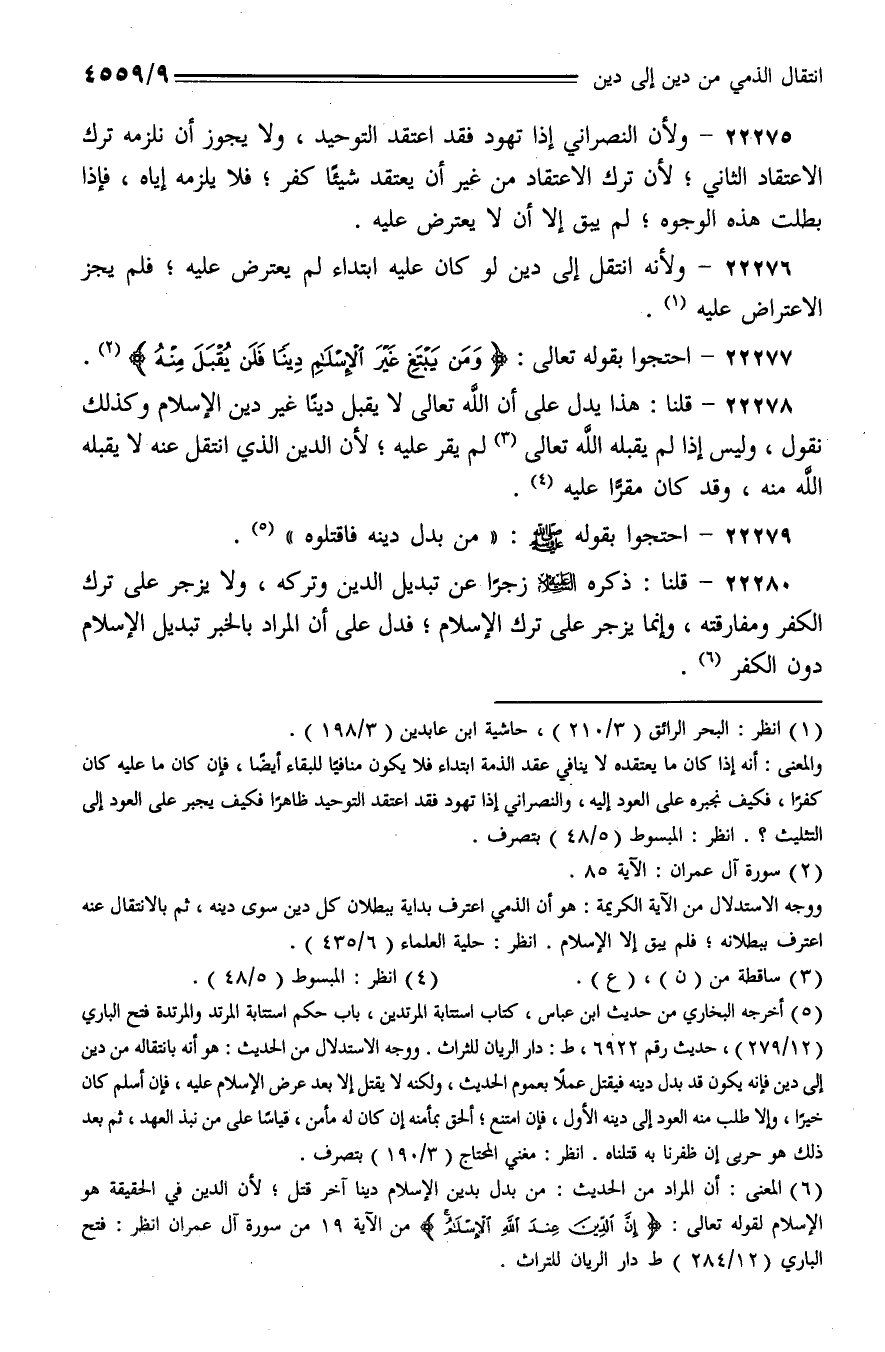 انتقال الذمي من دين إلى دين ٤٥٥٩/٩
٢٢٢٧٥ – ولأن النصراني إذا تهود فقد اعتقد التوحيد ، ولا يجوز أن نلزمه ترك
الاعتقاد الثاني ؛ لأن ترك الاعتقاد من غير أن يعتقد شيئًا كفر ؛ فلا يلزمه إياه ، فإذا
بطلت هذه الوجوه ؛ لم يبق إلا أن لا يعترض عليه .
٢٢٢٧٦ – ولأنه انتقل إلى دين لو كان عليه ابتداء لم يعترض عليه ؛ فلم يجز
الاعتراض عليه (١) .
٢٢٢٧٧ – احتجوا بقوله تعالى : ﴿ وَمَن يَبْتَغِ غَيْرَ ٱلْإِسْلَٰمِ دِينًا فَلَن يُقْبَلَ مِنْهُ ﴾ (٢) .
٢٢٢٧٨ – قلنا : هذا يدل على أن اللَّه تعالى لا يقبل دينًا غير دين الإسلام وكذلك
نقول ، وليس إذا لم يقبله اللَّه تعالى (٣) لم يقر عليه ؛ لأن الدين الذي انتقل عنه لا يقبله
اللَّه منه ، وقد كان مقرًّا عليه (٤) .
٢٢٢٧٩ – احتجوا بقوله ﷺ : « من بدل دينه فاقتلوه » (٥) .
٢٢٢٨٠ – قلنا : ذكره عليه السلام زجرًا عن تبديل الدين وتركه ، ولا يزجر على ترك
الكفر ومفارقته ، وإنما يزجر على ترك الإسلام ؛ فدل على أن المراد بالخبر تبديل الإسلام
دون الكفر (٦) .
(١) انظر : البحر الرائق ( ٢١٠/٣ ) ، حاشية ابن عابدين ( ١٩٨/٣ ) .
والمعنى : أنه إذا كان ما يعتقده لا ينافي عقد الذمة ابتداء فلا يكون منافيًا للبقاء أيضًا ، فإن كان ما عليه كان
كفرًا ، فكيف نجبره على العود إليه ، والنصراني إذا تهود فقد اعتقد التوحيد ظاهرًا فكيف يجبر على العود إلى
التثليث ؟ . انظر : المبسوط ( ٤٨/٥ ) بتصرف .
(٢) سورة آل عمران : الآية ٨٥ .
ووجه الاستدلال من الآية الكريمة : هو أن الذمي اعترف بداية ببطلان كل دين سوى دينه ، ثم بالانتقال عنه
اعترف ببطلانه ؛ فلم يبق إلا الإسلام . انظر : حلية العلماء ( ٤٣٥/٦ ) .
(٣) ساقطة من ( ن ) ، ( ع ) . (٤) انظر : المبسوط ( ٤٨/٥ ) .
(٥) أخرجه البخاري من حديث ابن عباس ، كتاب استتابة المرتدين ، باب حكم استتابة المرتد والمرتدة فتح الباري
(٢٧٩/١٢) ، حديث رقم ٦٩٢٢ ، ط : دار الريان للتراث . ووجه الاستدلال من الحديث : هو أنه بانتقاله من دين
إلى دين فإنه يكون قد بدل دينه فيقتل عملًا بعموم الحديث ، ولكنه لا يقتل إلا بعد عرض الإسلام عليه ، فإن أسلم كان
خيرًا ، وإلا طلب منه العود إلى دينه الأول ، فإن امتنع ؛ ألحق بمأمنه إن كان له مأمن ، قياسًا على من نبذ العهد ، ثم بعد
ذلك هو حربى إن ظفرنا به قتلناه . انظر : مغني المحتاج ( ١٩٠/٣ ) بتصرف .
(٦) المعنى : أن المراد من الحديث : من بدل بدين الإسلام دينا آخر قتل ؛ لأن الدين في الحقيقة هو
الإسلام لقوله تعالى : ﴿ إِنَّ ٱلدِّينَ عِندَ ٱللَّهِ ٱلْإِسْلَٰمُ ﴾ من الآية ١٩ من سورة آل عمران انظر : فتح
الباري ( ٢٨٤/١٢ ) ط دار الريان للتراث .